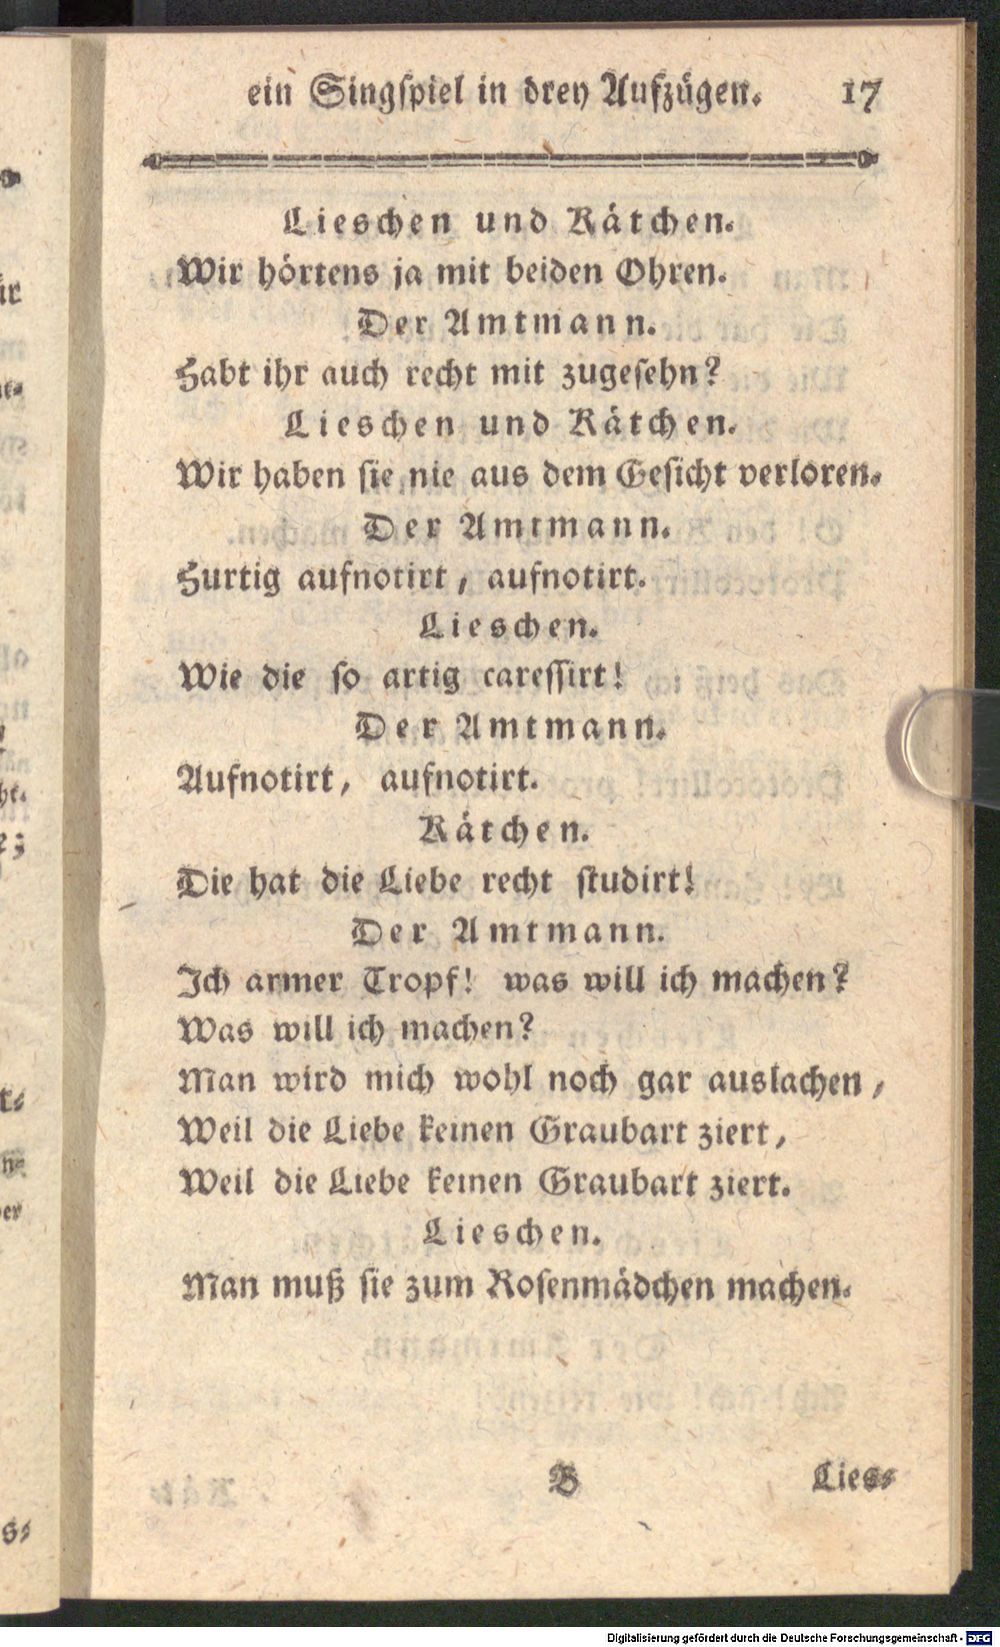 ein Singſpiel in drey Aufzügen. 17
Lieschen und Kätchen.
Wir hörtens ja mit beiden Ohren.
Der Amtmann.
Habt ihr auch recht mit zugeſehn?
Lieschen und Kätchen.
Wir haben ſie nie aus dem Geſicht verloren.
Der Amtmann.
Hurtig aufnotirt, aufnotirt.
Lieschen.
Wie die ſo artig careſſirt!
Der Amtmann.
Aufnotirt, aufnotirt.
Kätchen.
Die hat die Liebe recht ſtudirt!
Der Amtmann.
Ich armer Tropf! was will ich machen?
Was will ich machen?
Man wird mich wohl noch gar auslachen,
Weil die Liebe keinen Graubart ziert,
Weil die Liebe keinen Graubart ziert.
Lieschen.
Man muß ſie zum Roſenmädchen machen.
B Lies⸗
Digitalisierung gefördert durch die Deutsche Forschungsgemeinschaft - DFG